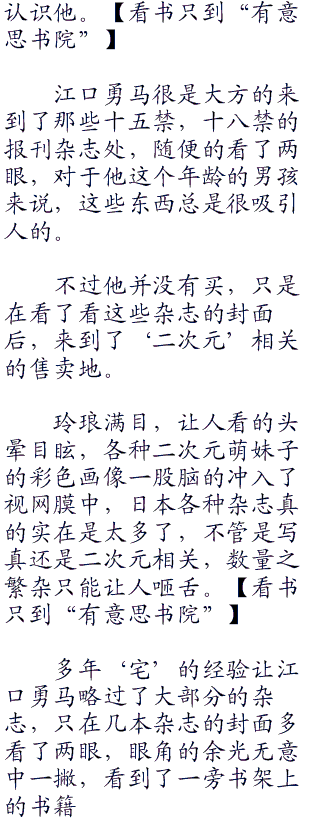 认识他。【看书只到“有意
思书院”】
江口勇马很是大方的来
到了那些十五禁，十八禁的
报刊杂志处，随便的看了两
眼，对于他这个年龄的男孩
来说，这些东西总是很吸引
人的。
不过他并没有买，只是
在看了看这些杂志的封面
后，来到了‘二次元’相关
的售卖地。
玲琅满目，让人看的头
晕目眩，各种二次元萌妹子
的彩色画像一股脑的冲入了
视网膜中，日本各种杂志真
的实在是太多了，不管是写
真还是二次元相关，数量之
繁杂只能让人咂舌。【看书
只到“有意思书院”】
多年‘宅’的经验让江
口勇马略过了大部分的杂
志，只在几本杂志的封面多
看了两眼，眼角的余光无意
中一撇，看到了一旁书架上
的书籍